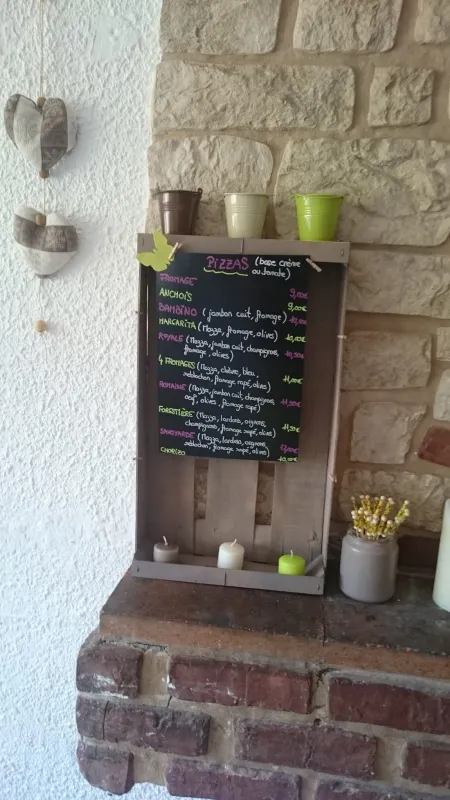 PIZZAS (base crème
ou tomate)
FROMAGE 9,00€
ANCHOIS 9,00€
BAMBINO (jambon cuit, fromage) 10,00€
MARGARITA (Mozza, fromage, olives) 10,00€
ROYALE (Mozza, jambon cuit, champignons, 10,50€
fromage, olives)
4 FROMAGES (Mozza, chèvre, bleu, 11,00€
reblochon, fromage rapé, olives)
ROMAINE (Mozza, jambon cuit, champignons, 11,50€
oeuf, olives, fromage rapé)
FORESTIÈRE (Mozza, lardons, oignons, 11,50€
champignons, fromage rapé, olives)
SAVOYARDE (Mozza, lardons, oignons,
reblochon, fromage rapé, olives)
CHORIZO 10,00€